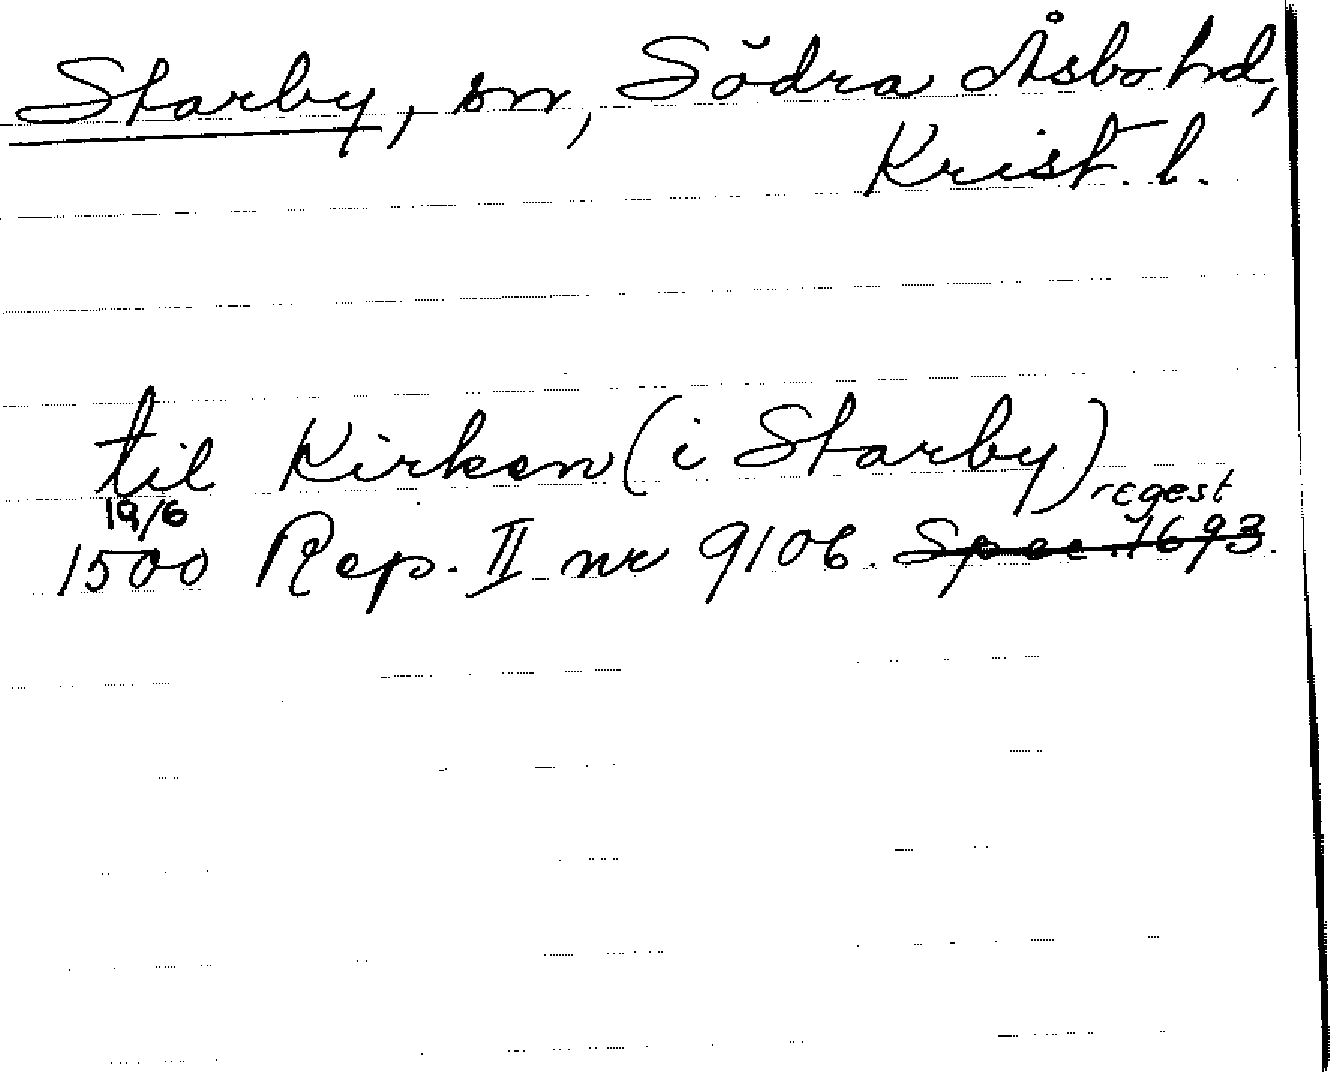 Starby, sn, Södra Åsbo hd,
Krist. l.
til Kirken (i Starby)
regest
19/6
1500 Rep. II nr 9106. Spec. 1693.